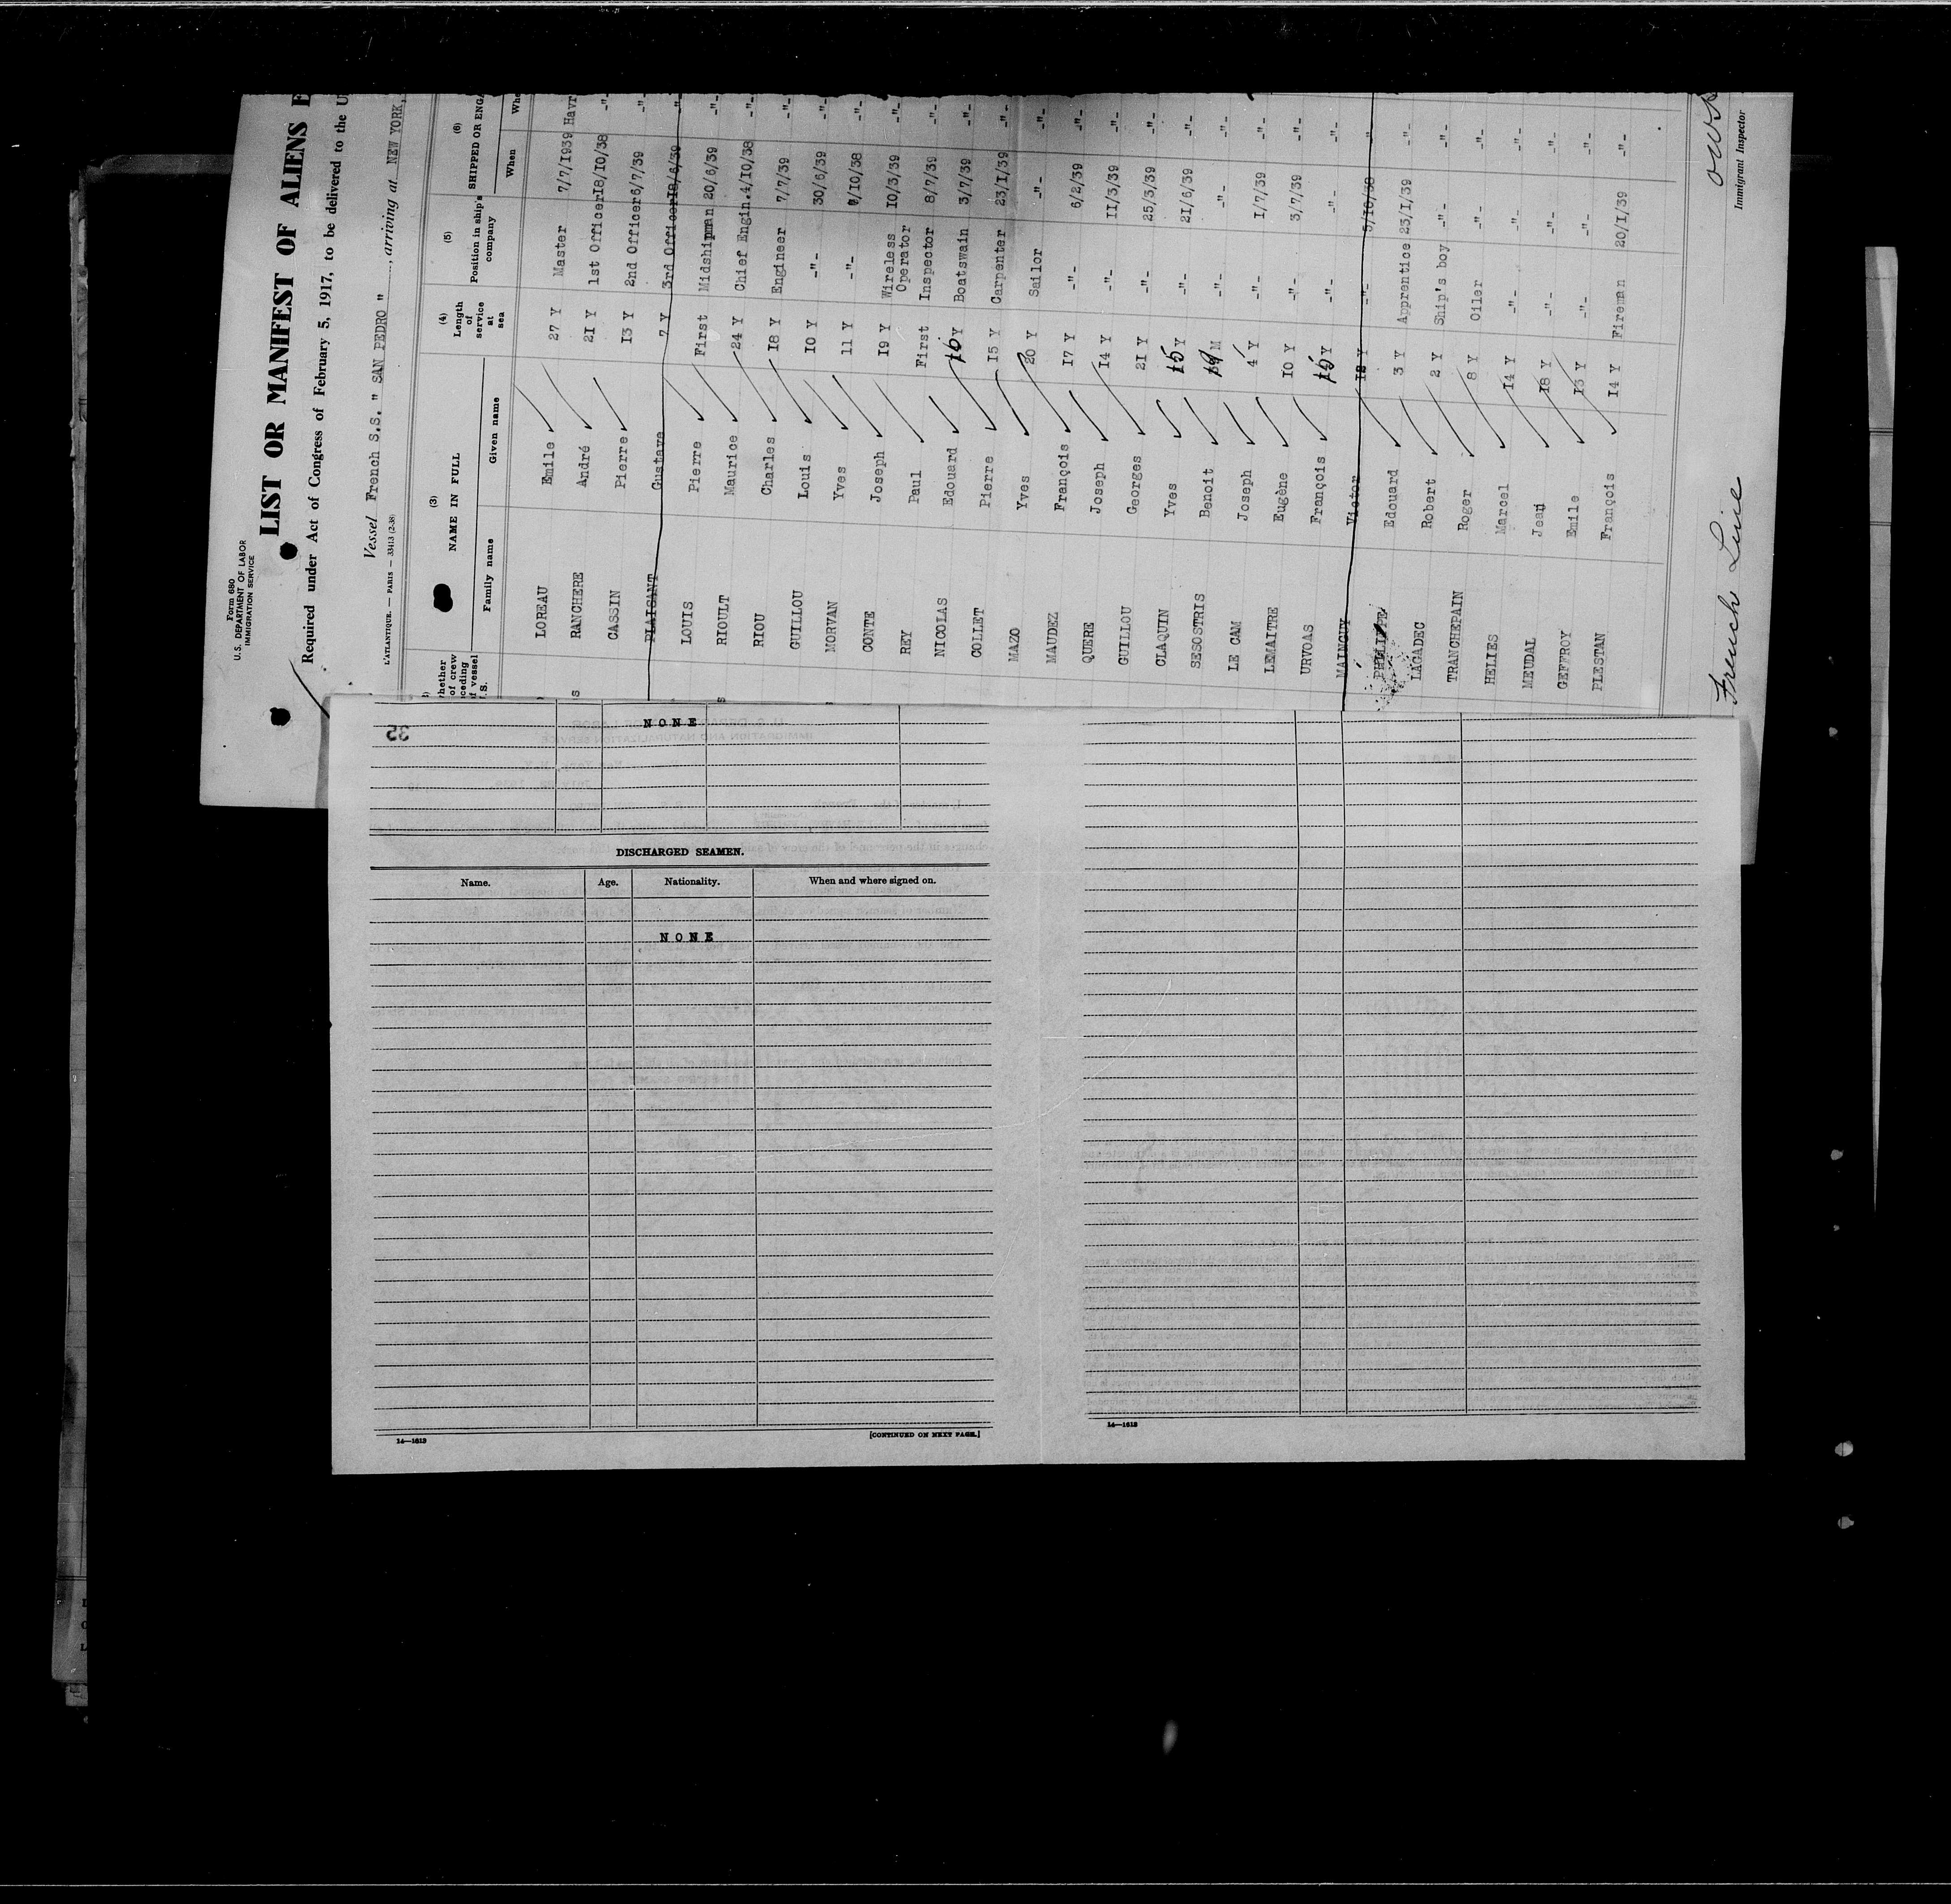 Form 680
U.S. DEPARTMENT OF LABOR
IMMIGRATION SERVICE
LIST OR MANIFEST OF ALIENS E
Required under Act of Congress of February 5, 1917, to be delivered to the U
Vessel French S.S. " SAN PEDRO " , arriving at NEW YORK,
L'ATLANTIQUE. — PARIS — 33413 (2-38)
(3) (4) (5) (6)
NAME IN FULL Length of service at sea Position in ship's company SHIPPED OR ENGA
hether
of crew
ceding
f vessel
.S.
Family name Given name When Whe
LOREAU Emile 27 Y Master 7/7/1939 Havr
RANCHERE André 21 Y 1st Officer 18/10/38 -"-
CASSIN Pierre 13 Y 2nd Officer 6/7/39 -"-
PLAISANT Gustave 7 Y 3rd Officer 12/6/39 -"-
LOUIS Pierre First Midshipman 20/6/39 -"-
RIOULT Maurice 24 Y Chief Engin. 4/10/38 -"-
RIOU Charles 18 Y Engineer 7/7/39 -"-
GUILLOU Louis 10 Y -"- 30/6/39 -"-
MORVAN Yves 11 Y -"- /10/38 -"-
CONTE Joseph 19 Y Wireless Operator 10/3/39 -"-
REY Paul First Inspector 8/7/39 -"-
NICOLAS Edouard 16 Y Boatswain 3/7/39 -"-
COLLET Pierre 15 Y Carpenter 23/1/39 -"-
MAZO Yves 20 Y Sailor -"- -"-
MAUDEZ François 17 Y -"- 6/2/39 -"-
QUERE Joseph 14 Y -"- 11/3/39 -"-
GUILLOU Georges 21 Y -"- 25/3/39 -"-
CLAQUIN Yves 15 Y -"- 21/6/39 -"-
SESOSTRIS Benoit M -"- -"- -"-
LE CAM Joseph 4 Y -"- 1/7/39 -"-
LEMAITRE Eugène 10 Y -"- 3/7/39 -"-
URVOAS François 15 Y -"- -"- -"-
MAINGUY Victor 12 Y -"- 5/10/38 -"-
PHILIPPE Edouard 3 Y Apprentice 23/1/39 -"-
LAGADEC Robert 2 Y Ship's boy -"- -"-
TRANCHEPAIN Roger 8 Y Oiler -"- -"-
HELIES Marcel 14 Y -"- -"- -"-
MEUDAL Jean 18 Y -"- -"- -"-
GEFFROY Emile 13 Y -"- -"- -"-
PLESTAN François 14 Y Fireman 20/1/39 -"-
French Line
Immigrant Inspector
35
NONE
DISCHARGED SEAMEN.
Name. Age. Nationality. When and where signed on.
NONE
14—1613 [CONTINUED ON NEXT PAGE.]
14—1613